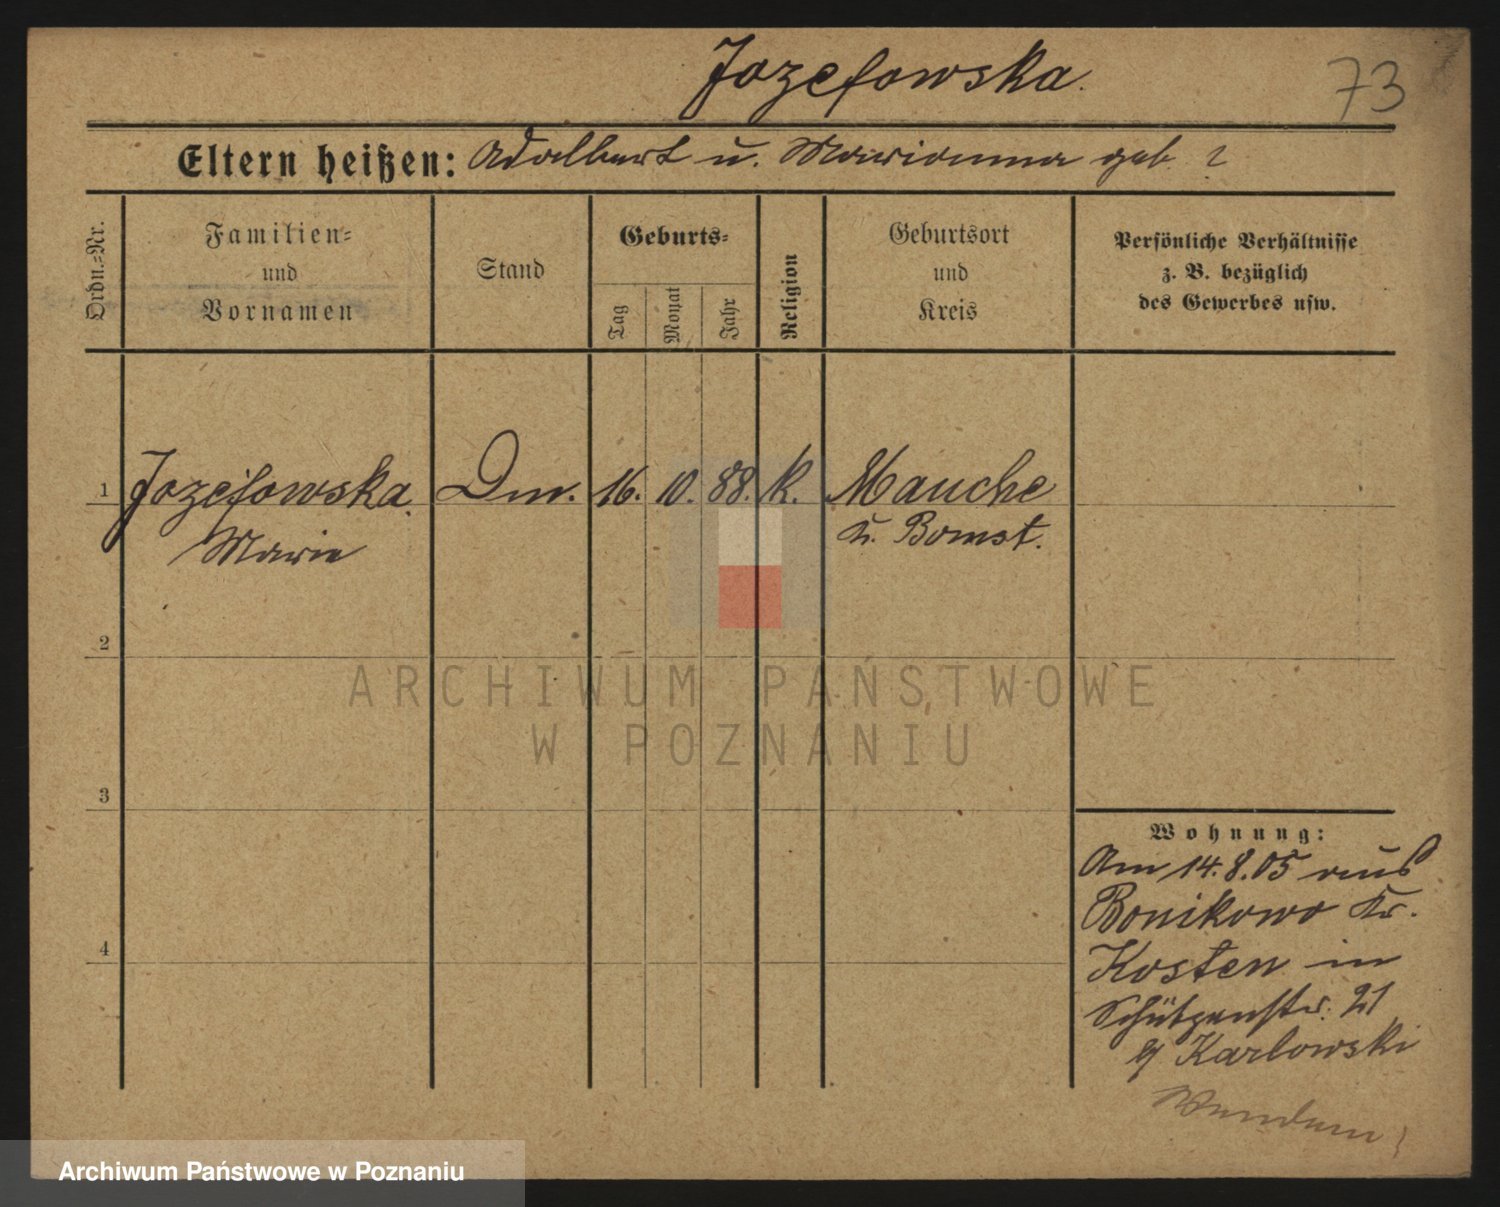 Jozefowska.
73
Eltern heißen: Adalbert u. Marianna geb. ?
Ordn.-Nr.
Familien-
und
Vornamen
Stand
Geburts-
Tag
Monat
Jahr
Religion
Geburtsort
und
Kreis
Persönliche Verhältnisse
z. B. bezüglich
des Gewerbes usw.
1 Jozefowska Dm. 16. 10. 88. K. Mauche
Marie
Kr. Bomst.
2
ARCHIWUM PAŃSTWOWE
W POZNANIU
3
Wohnung:
Am 14.8.05 aus
Bonikowo Kr.
4
Kosten in
Schützenstr. 21
b/ Karlowski
Wenden!
Archiwum Państwowe w Poznaniu